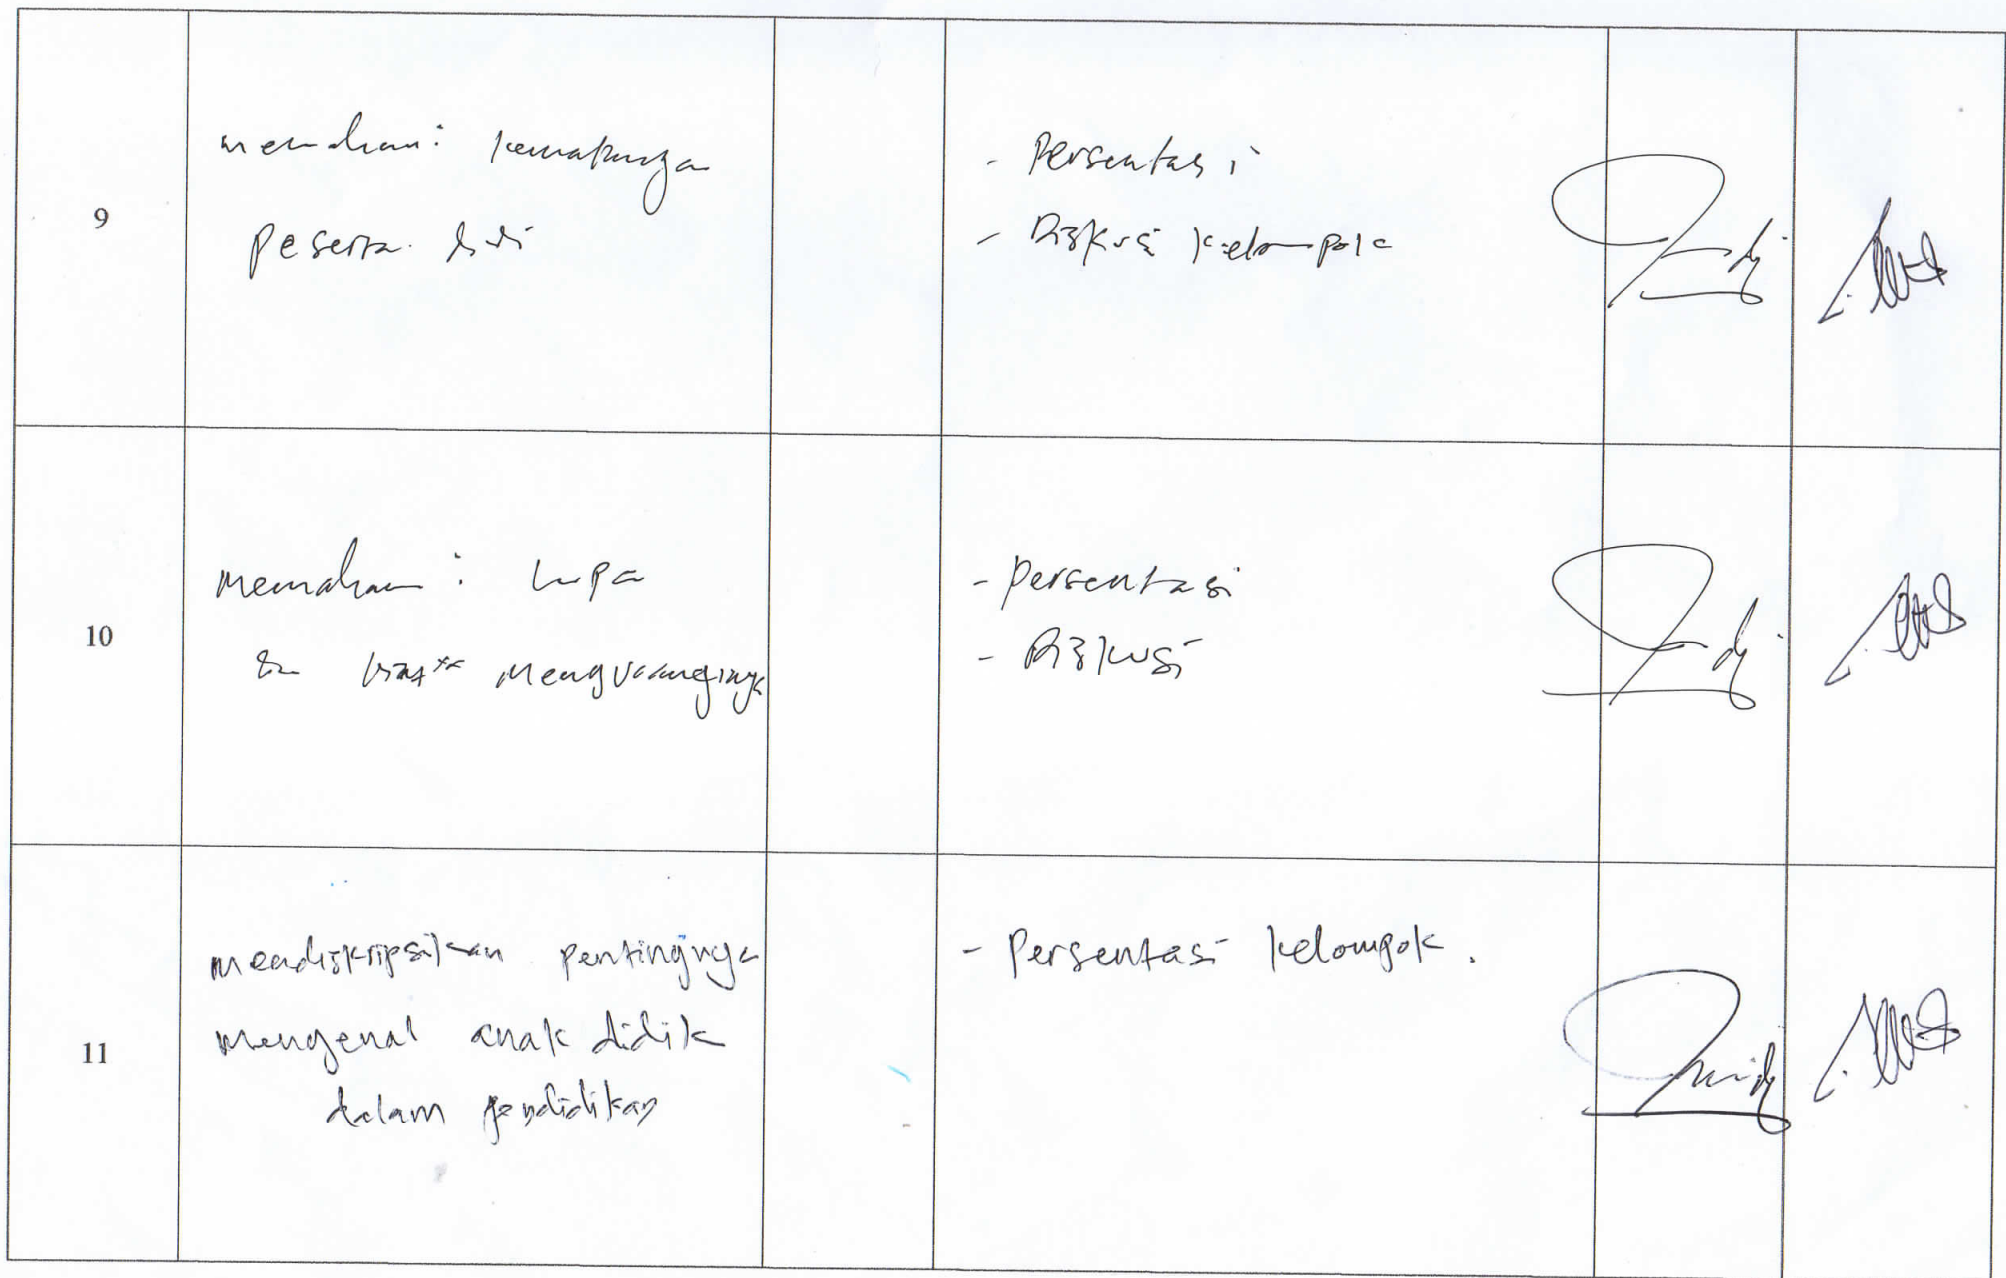 9
memahami
peserta didi
- Persentasi
- Diskusi kelompok
10
memahami lupa
mengurangginya
- persentasi
- Diskusi
11
mendiskripsikan pentingnya
mengenal anak didik
dalam pendidikan
- Persentasi kelompok.